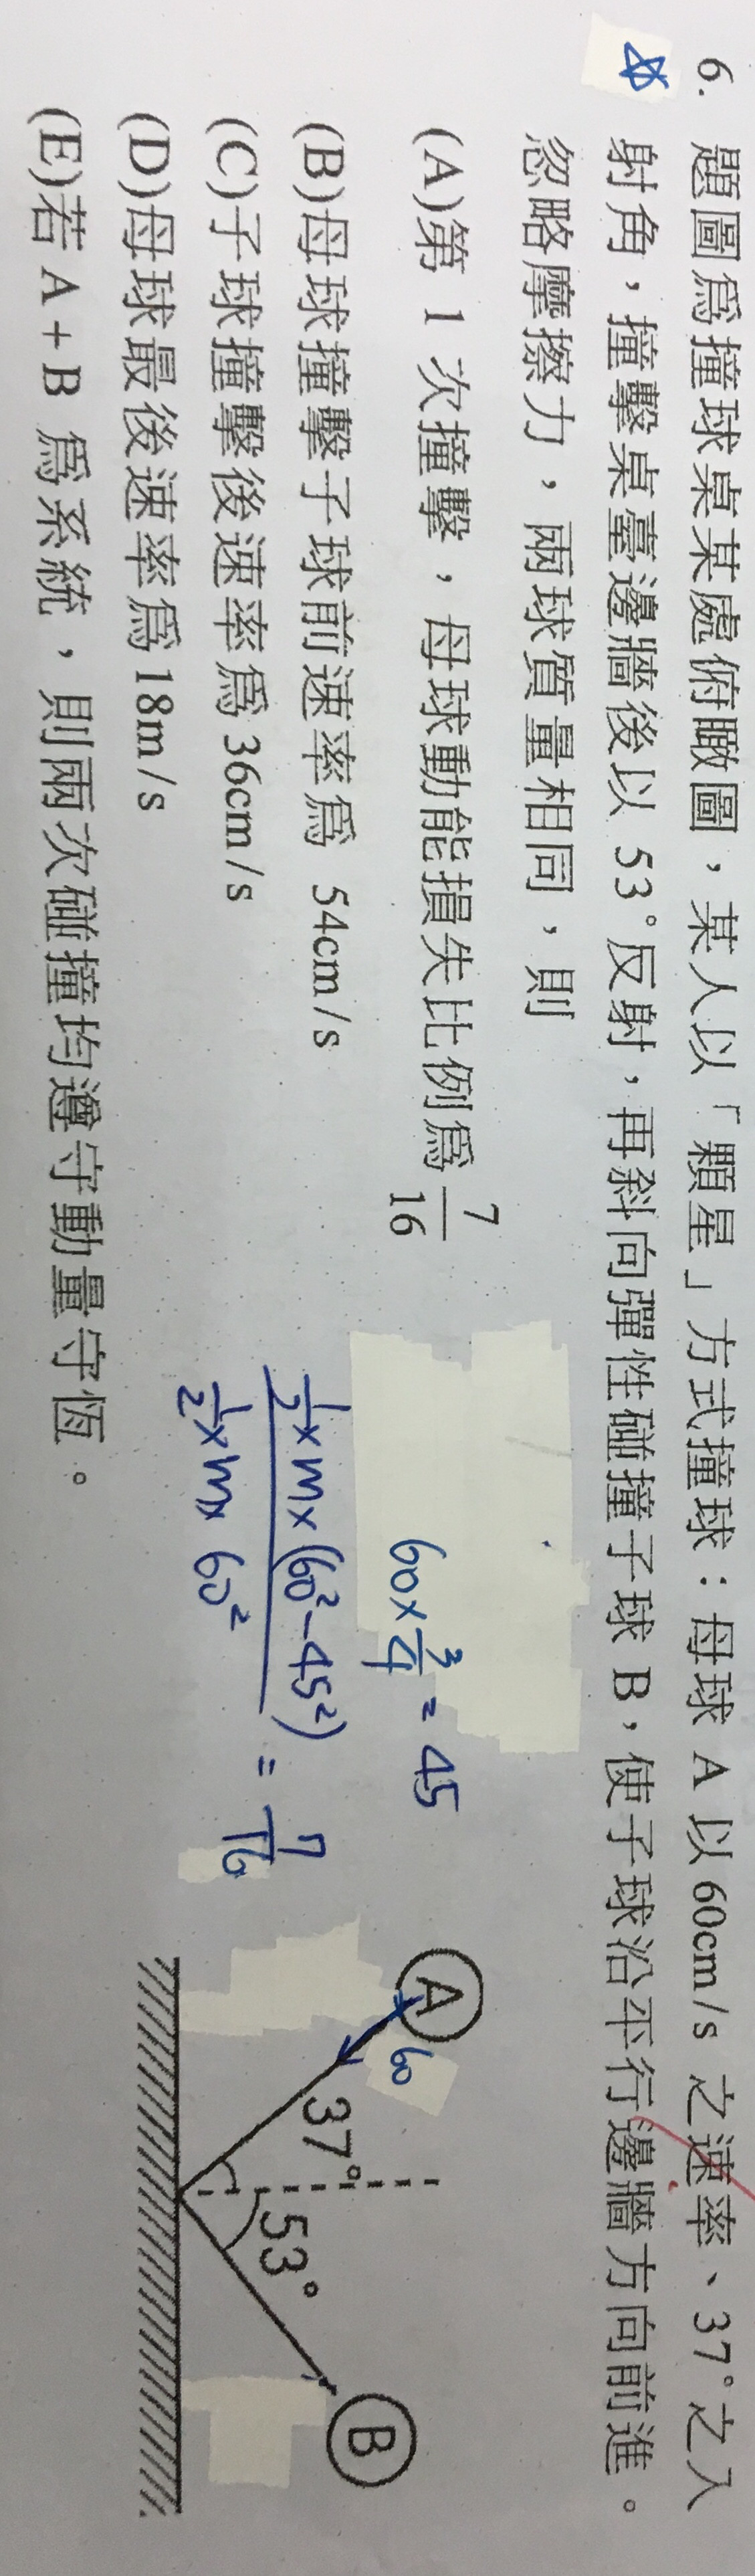 6. 題圖為撞球桌某處俯瞰圖，某人以「顆星」方式撞球：母球 A 以 60cm/s 之速率、37°之入
射角，撞擊桌臺邊牆後以 53°反射，再斜向彈性碰撞子球 B，使子球沿平行邊牆方向前進。
忽略摩擦力，兩球質量相同，則
(A)第 1 次撞擊，母球動能損失比例為 7/16
(B)母球撞擊子球前速率為 54cm/s
(C)子球撞擊後速率為 36cm/s
(D)母球最後速率為 18m/s
(E)若 A + B 為系統，則兩次碰撞均遵守動量守恆。
60 × 3/4 = 45
1/2 × m × (60² - 45²) / 1/2 × m × 60² = 7/16
A
60
37°
53°
B